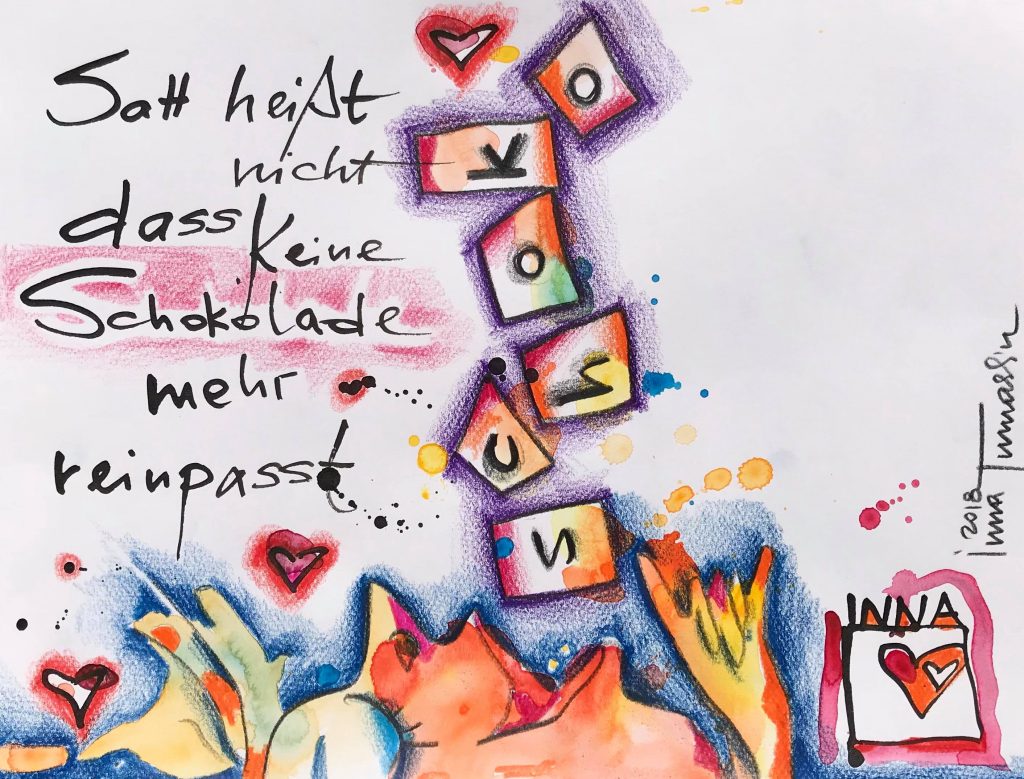 Satt heißt
nicht
dass keine
Schokolade
mehr
reinpasst
SChOKO
2018
inna
INNA